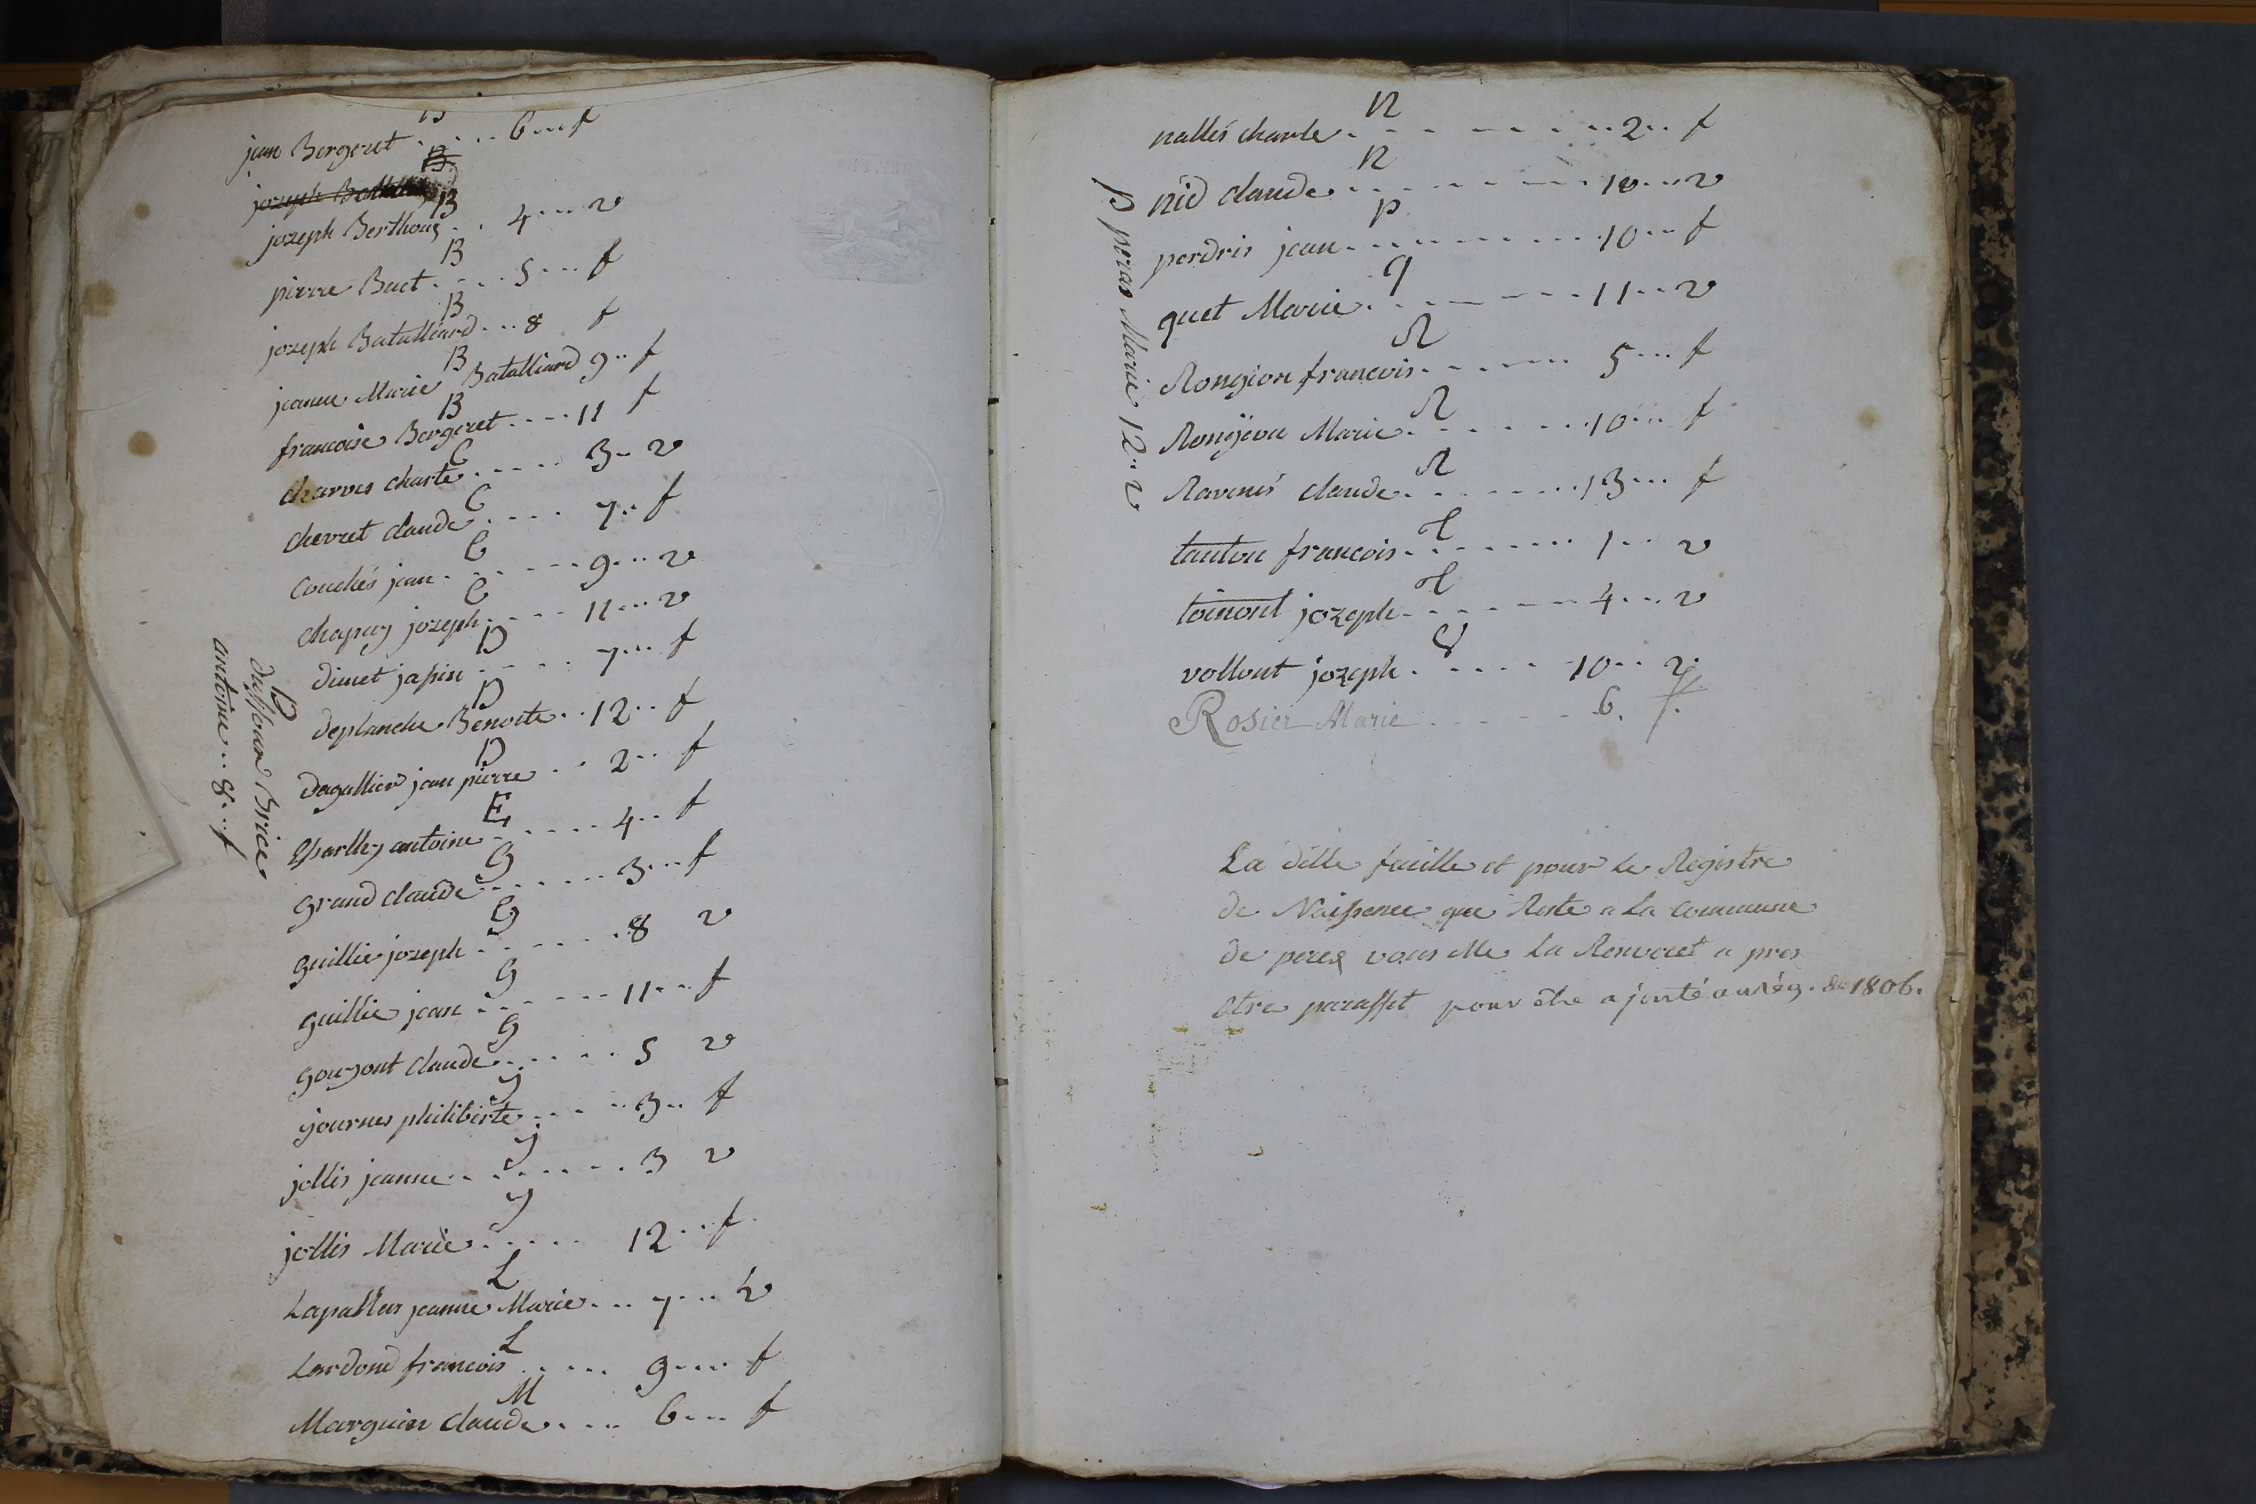 B
jean Bergeret . . . . . 6 . . . f
B
jozeph
B
jozeph Berthoug . . 4 . . . v
B
pierre Buet . . . . 5 . . . f
B
jozeph Batalliard . . . 8 f
B
jeanne Marie Batalliard 9 . . f
B
francoise Bergeret . . . . 11 f
C
charves charle . . . . . 3 . . v
C
chevret claude . . . . 7 . . f
C
couchés jean . . . . . . 9 . . . v
C
chapuy jozeph . . . . 11 . . . v
D
dimet japin . . . . . 7 . . . f
D
deplanche Benoite . . 12 . . f
D
dagallier jean pierre . . 2 . . f
E
antoine . . . . . 4 . . f
g
grand claude . . . . . . 3 . . . f
g
guillie jozeph . . . . . . 8 v
g
guillie jean . . . . . . 11 . . . f
g
goujont claude . . . . . . 5 v
j
journes philiberte . . . . . 3 . . f
j
jollis jeanne . . . . . . . 3 v
j
jollis Marie . . . . . 12 . . f
L
Lapalles jeanne Marie . . . 7 . . . v
L
Lardond francois . . . . . 9 . . . . f
M
Marguin claude . . . . 6 . . . f
D
duffour Brice
antoine . . 8 . . f
n
nallés charle . . . . . . . . 2 . . f
n
nid claude . . . . . . . . 10 . . . v
p
perdris jean . . . . . . . . . 10 . . . f
q
quet Marie . . . . . . . 11 . . v
R
Rongion francois . . . . . . 5 . . . f
R
Rongeon Marie . . . . . . . 10 . . . f
R
Ravenés claude . . . . . . . 13 . . . f
t
tanton francois . . . . . . . . 1 . . . v
t
toinont jozeph . . . . . . . 4 . . . v
v
vollout jozeph . . . . . . 10 . . v.
Rosier Marie . . . . . 6. f.
p peras Marie 12 . . v
La ditte feuille et pour le Registre
de Naissence que Reste a La commune
de perex vous Me La Renveret a pres
etre paraffet pour être a jouté au rég. de 1806.